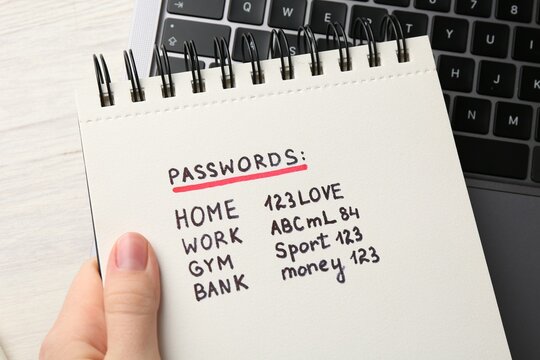 PASSWORDS:
HOME 123LOVE
WORK ABCmL 84
GYM Sport 123
BANK money 123